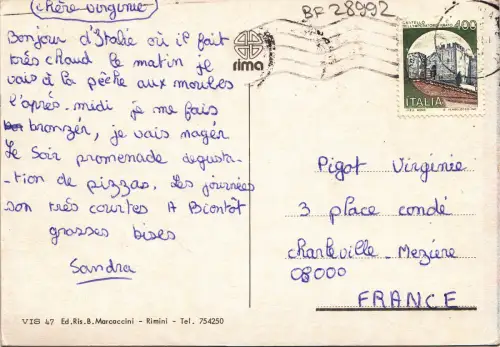 chère virginie
Bonjour d'Italie où il fait
très chaud le matin je
vais à la pêche aux moules
l'après-midi je me fais
bronzér, je vais nagér
Le Soir promenade degusta-
-tion de pizzas. Les journées
son très courtes A Bientôt
grosses bises
Sandra
BF 28992
rima
CASTELLO
400
ITALIA
Pigot Virginie
3 place condé
charleville-Mezière
08000
FRANCE
VIS 47 Ed.Ris.B.Marcaccini - Rimini - Tel. 754250